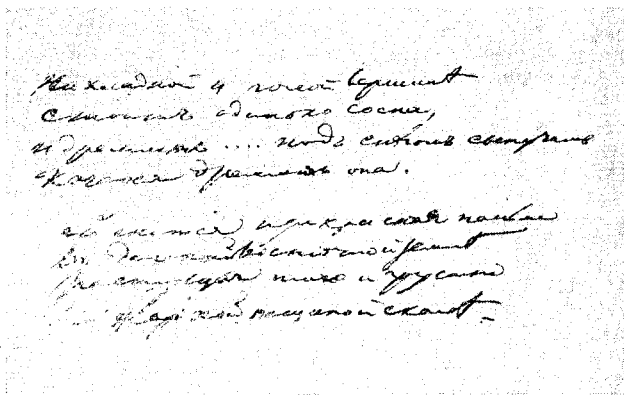 На хладной и голой вершинѣ
Стоитъ одиноко сосна,
и дремлетъ .... подъ снѣгомъ сыпучимъ
Качаяся дремлетъ она.
ей снится прекрасная пальма
Въ далекой восточной землѣ
Растущая тихо и грустно
жаркой песчаной скалѣ.